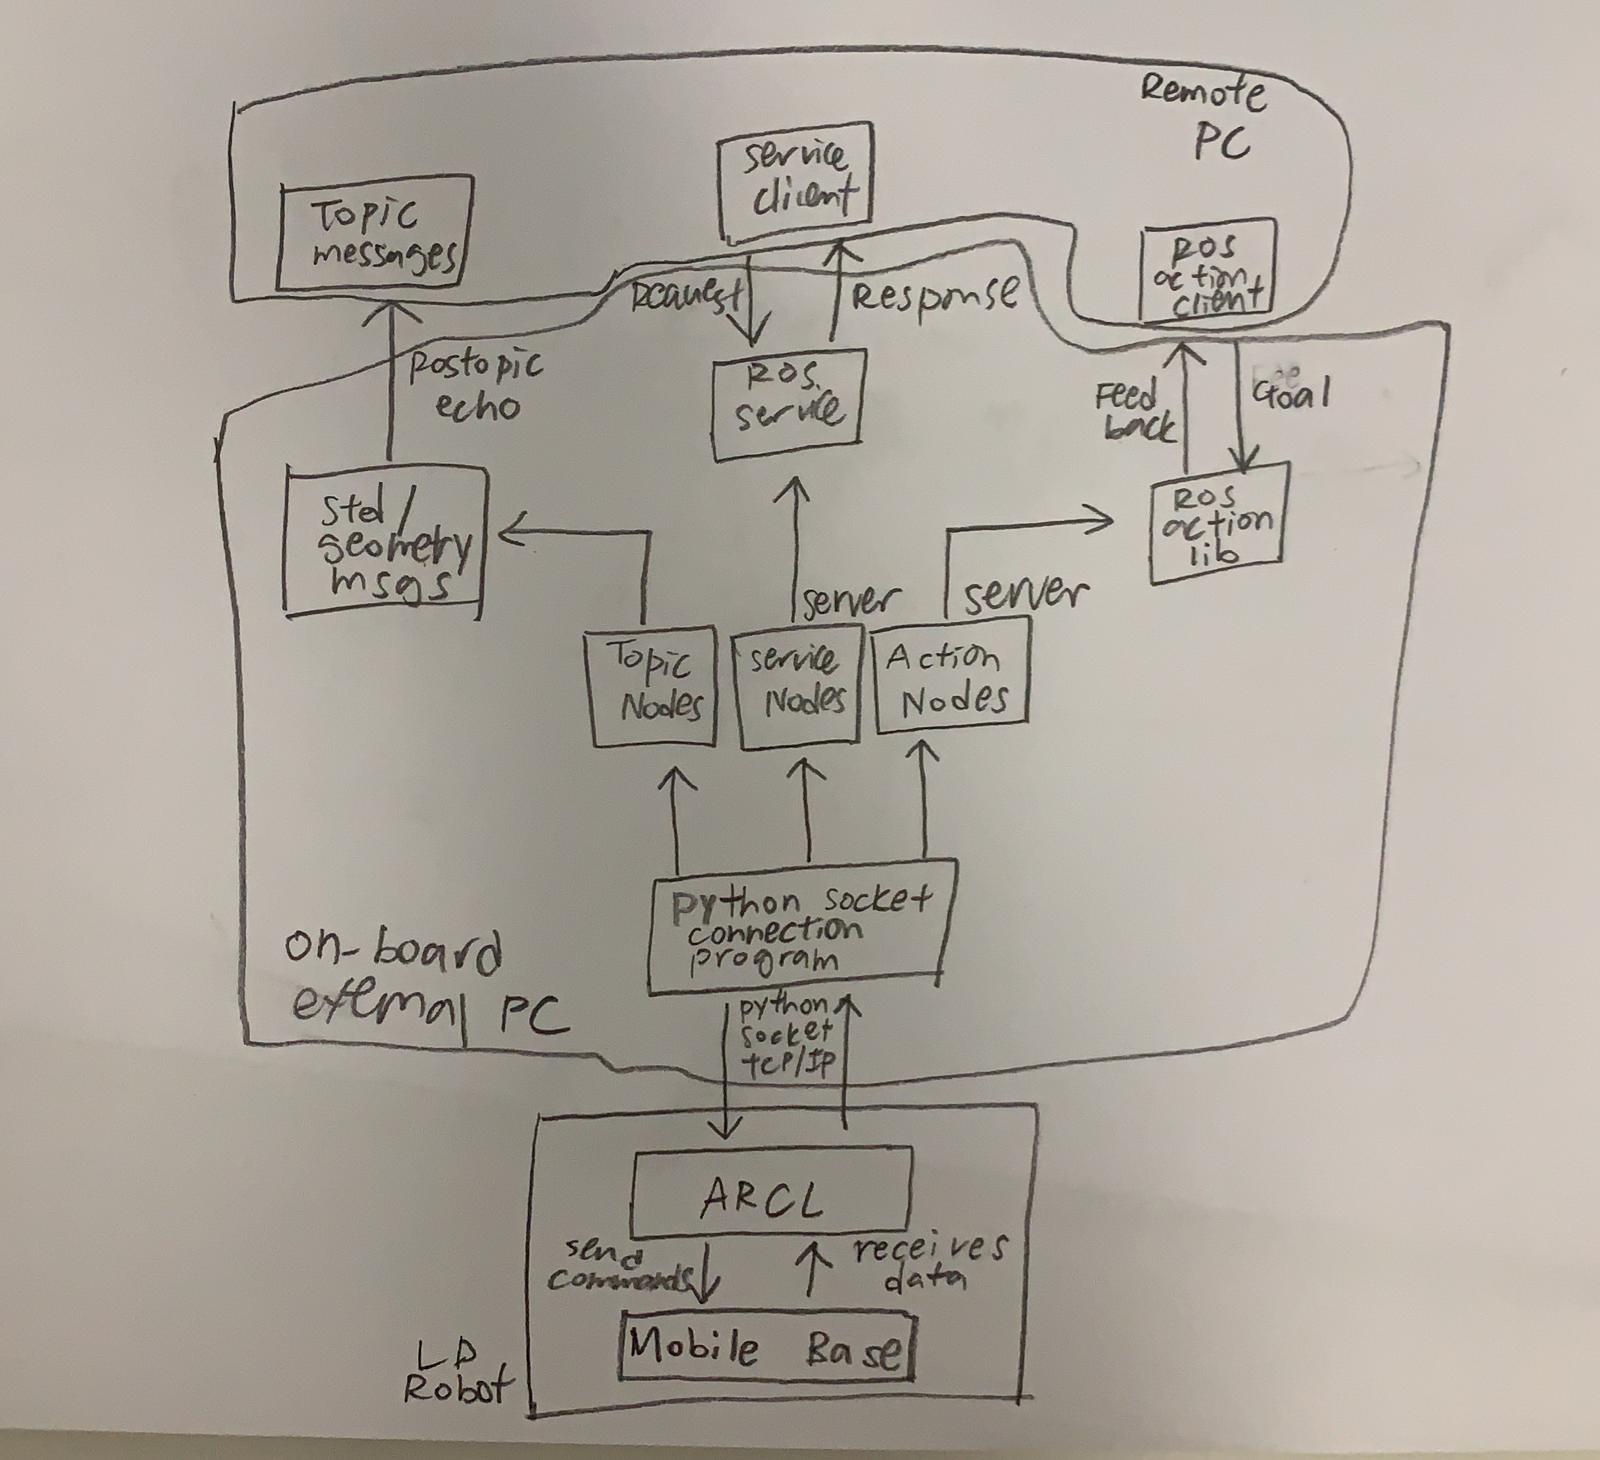 Remote
PC
service
client
Topic
messages
ROS
action
client
Request
Response
Rostopic
echo
ROS
service
Feed
back
Goal
std/
geometry
msgs
ROS
action
lib
server
server
Topic
Nodes
service
Nodes
Action
Nodes
python socket
connection
program
on-board
external PC
python
socket
tcp/IP
ARCL
send
commands
receives
data
Mobile Base
LD
Robot